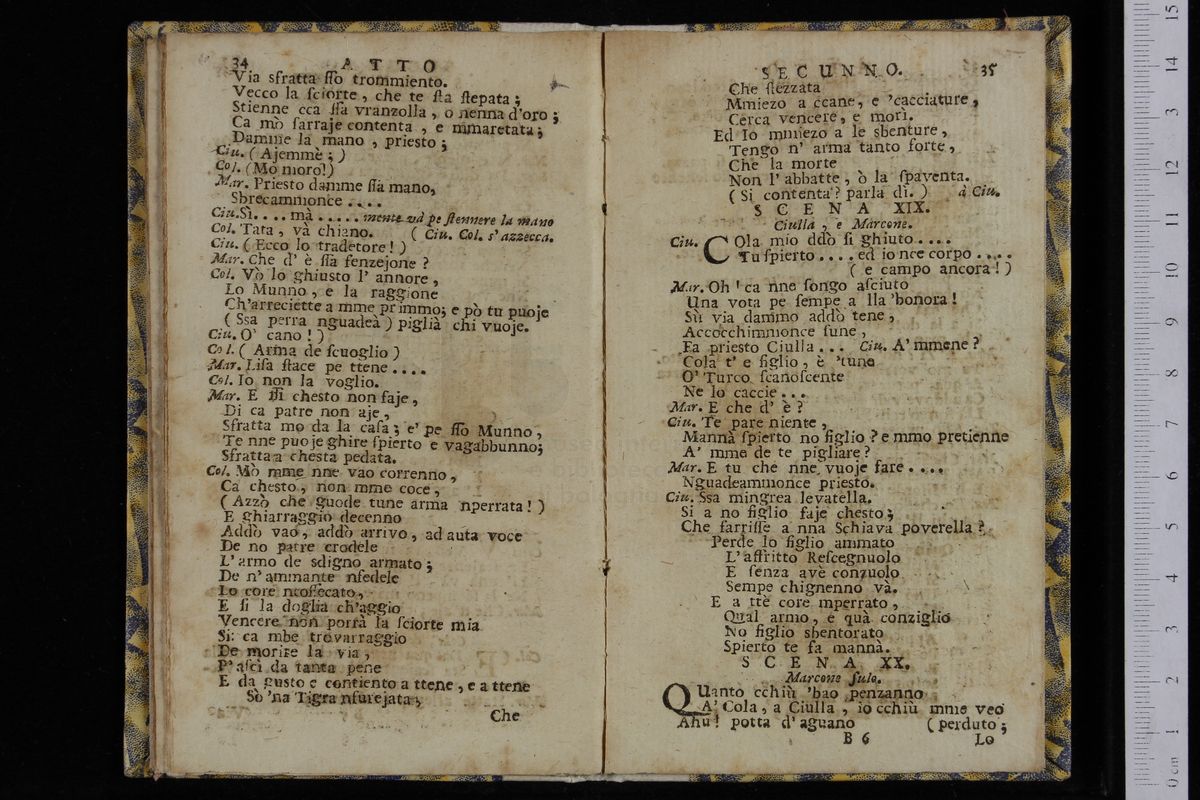 34 ATTO
Via sfratta ſſo trommiento.
Vecco la ſciorte, che te ſta ſtepata;
Stienne cca ſſa vranzolla, o nenna d'oro;
Ca mò ſarraje contenta, e mmaretata;
Damme la mano, priesto;
Ciu. (Ajemmè;)
Col. (Mo moro!)
Mar. Priesto damme ſſa mano,
Sbrecammonce ....
Ciu. Sì.... mà ..... mente và pe ſtennere la mano
Col. Tata, và chiano. (Ciu. Col. s'azzecca.
Ciu. (Ecco lo tradetore!)
Mar. Che d' è ſſa fenzejone?
Col. Vò lo ghiusto l' annore,
Lo Munno, e la raggione
Ch'arreciette a mme primmo; e pò tu puoje
(Ssa perra nguadea) piglià chi vuoje.
Ciu. O' cano!)
Col. (Arma de ſcuoglio)
Mar. Liſa ſtace pe ttene....
Col. Io non la voglio.
Mar. E ſſi chesto non faje,
Di ca patre non aje,
Sfratta mo da la caſa; e' pe ſſo Munno,
Te nne puoje ghire ſpierto e vagabbunno;
Sfratta a chesta pedata.
Col. Mò mme nne vao correnno,
Ca chesto, non mme coce,
(Azzò che guode tune arma nperrata!)
E ghiarraggio decenno
Addò vao, addò arrivo, ad auta voce
De no patre crodele
L'armo de sdigno armato;
De n'ammante nfedele
Lo core ntoſſecato,
E ſi la doglia ch'aggio
Vencere non porrà la ſciorte mia
Si: ca mbe trovarraggio
De morire la via,
P' aſcì da tanta pene
E da gusto e contiento a ttene, e a ttene
Sò 'na Tigra nfurejata,
Che
SECUNNO. 35
Che ſtezzata
Mmiezo a ccane, e 'cacciature,
Cerca vencere, e morì.
Ed Io mmiezo a le sbenture,
Tengo n' arma tanto forte,
Che la morte
Non l'abbatte, ò la ſpaventa.
(Si contenta? parla dì.) à Ciu.
SCENA XIX.
Ciulla, e Marcone.
Ciu. COla mio ddò ſi ghiuto....
Tu ſpierto.... ed io nce corpo....
(e campo ancora!)
Mar. Oh! ca nne ſongo aſciuto
Una vota pe ſempe a lla 'bonora!
Sù via dammo addò tene,
Accocchimmonce ſune,
Fa priesto Ciulla... Ciu. A' mmene?
Cola t' e figlio, è 'tune
O' Turco ſcanoſcente
Ne lo caccie...
Mar. E che d' è?
Ciu. Te pare niente,
Mannà ſpierto no figlio? e mmo pretienne
A' mme de te pigliare?
Mar. E tu che nne vuoje fare....
Nguadeammonce priesto.
Ciu. Ssa mingrea levatella.
Si a no figlio faje chesto;
Che farriſſe a nna Schiava poverella?
Perde lo figlio ammato
L'affritto Reſcegnuolo
E ſenza avè conzuolo
Sempe chignenno và.
E a ttè core mperrato,
Qual armo, e quà conziglio
No figlio sbentorato
Spierto te fa mannà.
SCENA XX.
Marcone ſulo.
QUanto cchiù 'bao penzanno
A' Cola, a Ciulla, io cchiù mme veo
Ahu! potta d'aguano (perduto;
B 6 Lo